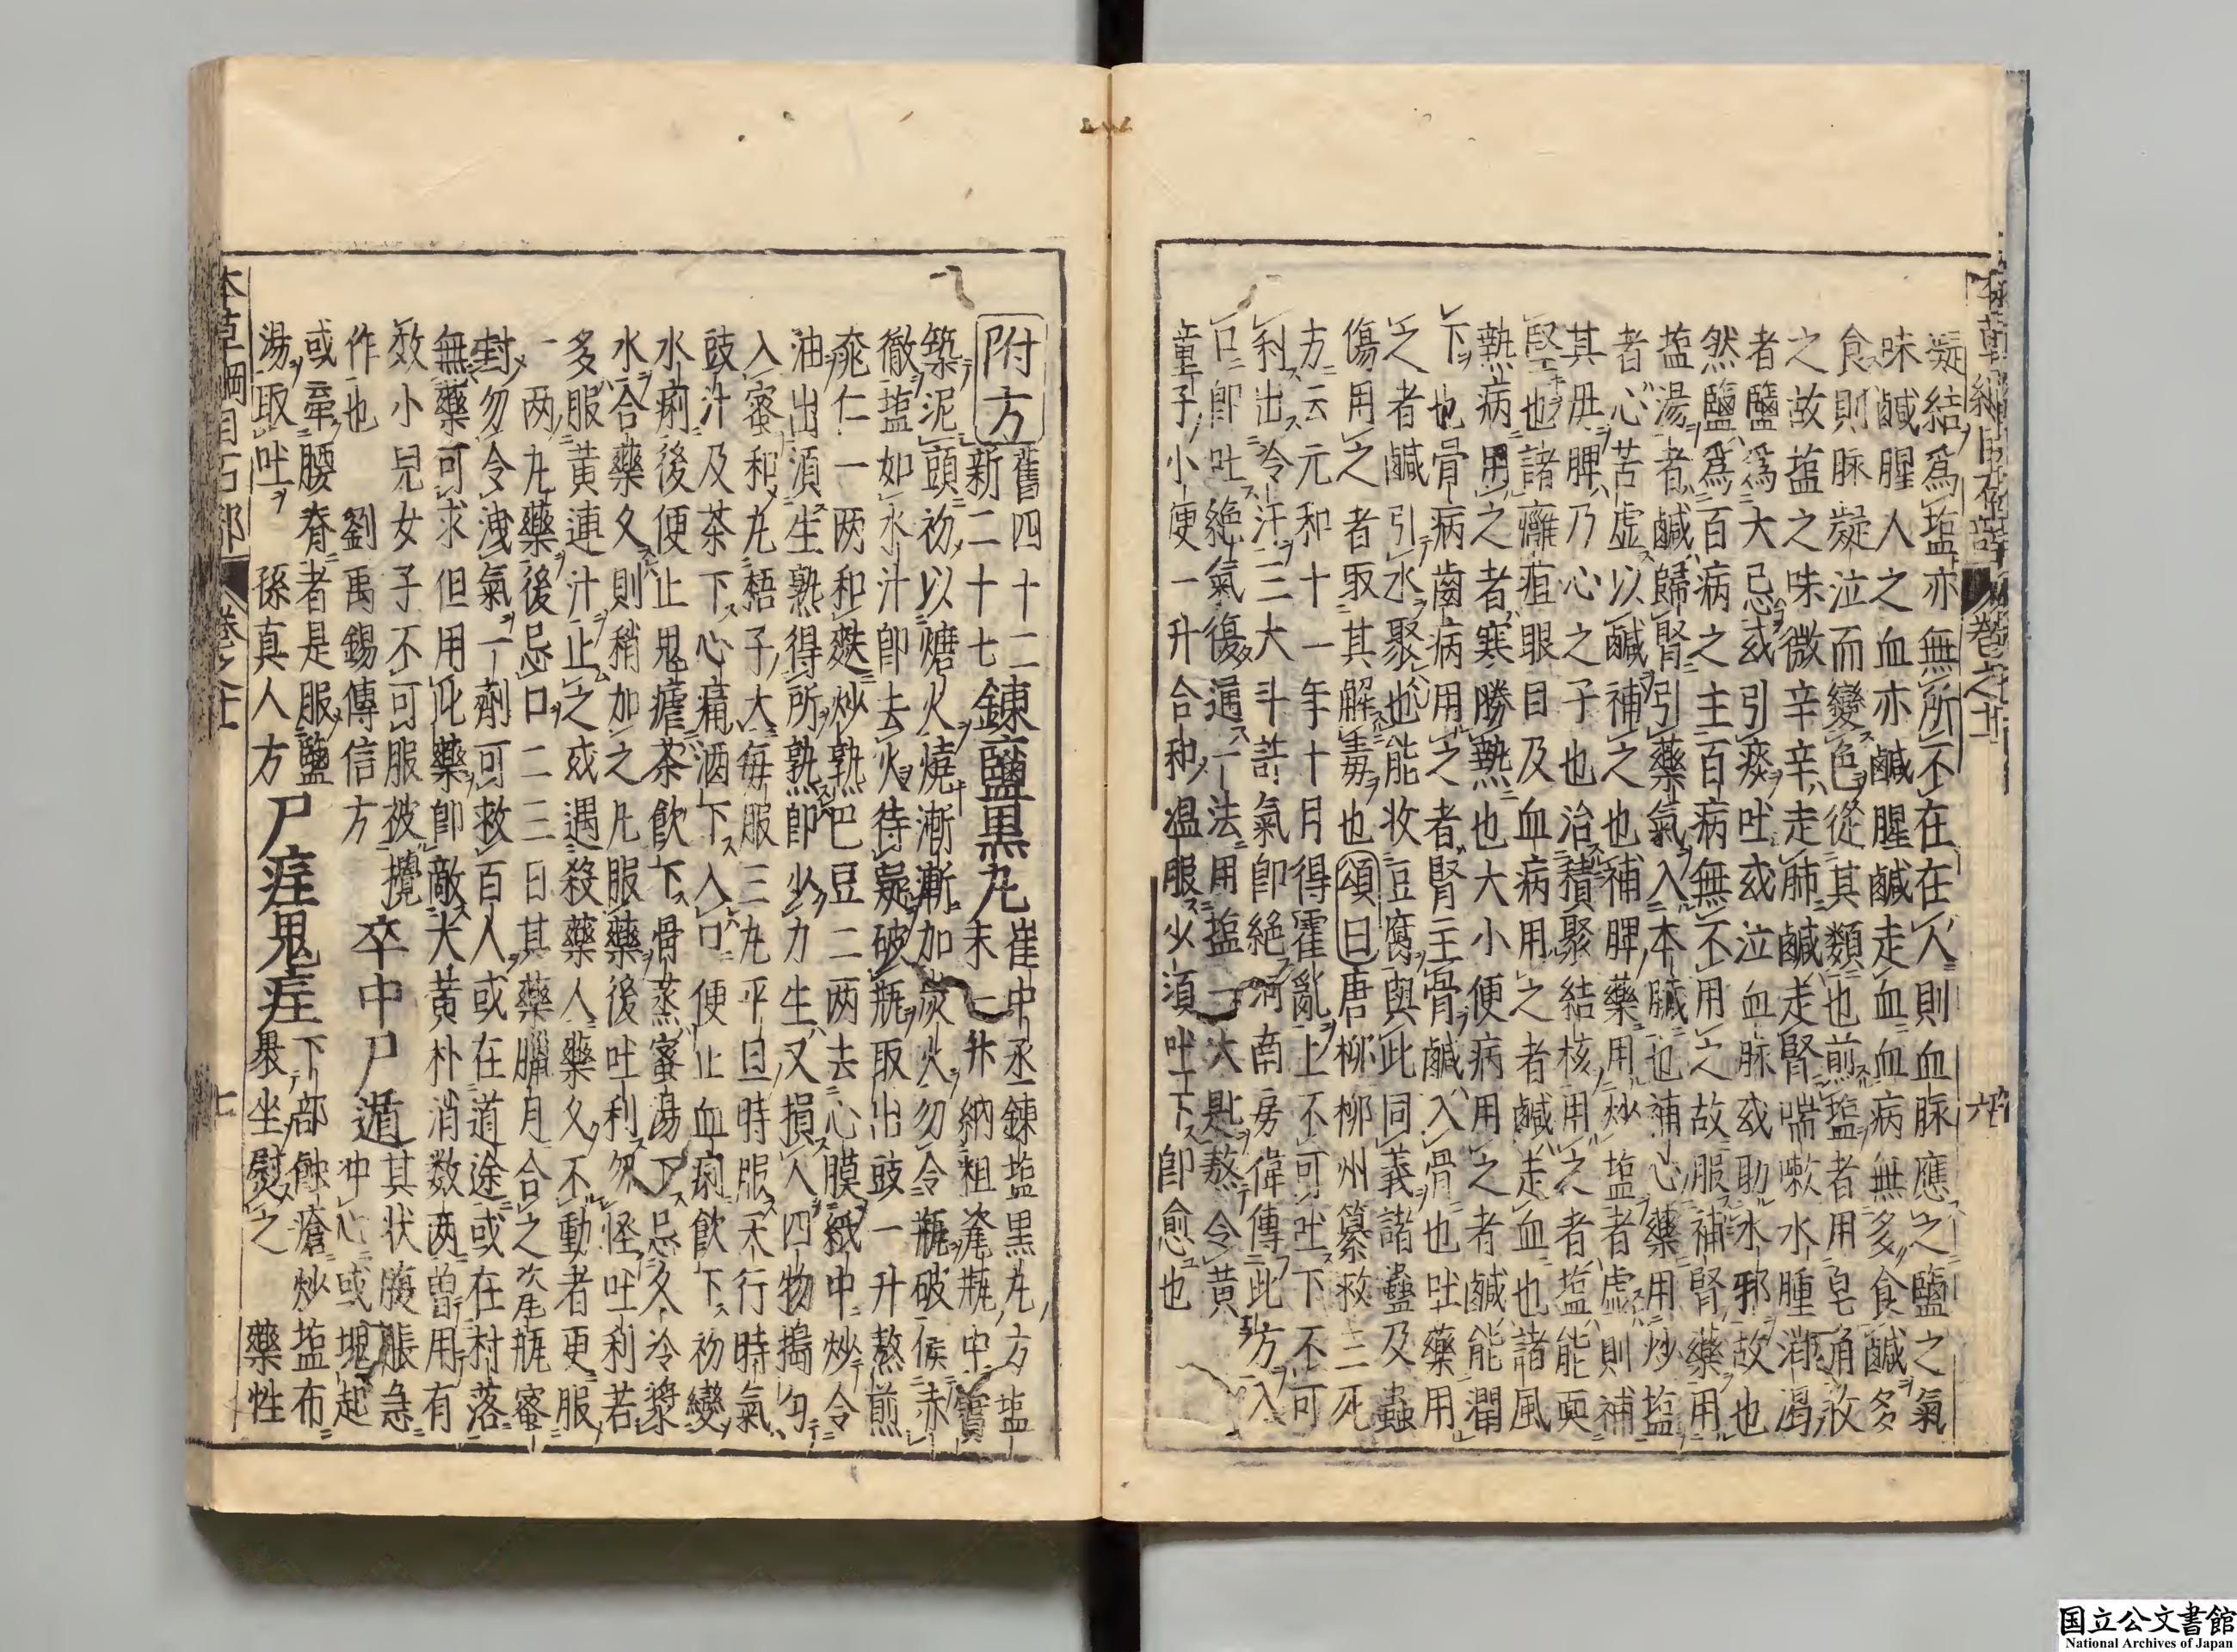 凝結爲塩亦無所不在在人則血脉應之鹽之氣
味鹹腥人之血亦鹹腥鹹走血血病無多食鹹多
食則脉凝泣而變色從其類也煎塩者用皂角收
之故塩之味微辛辛走肺鹹走腎喘嗽水腫消渴
者鹽爲大忌或引痰吐或泣血脉或助水邪故也
然鹽爲百病之主百病無不用之故服補腎藥用
塩湯者鹹歸腎引藥氣入本臟也補心藥用炒塩
者心苦虚以鹹補之也補脾藥用炒塩者虚則補
其母脾乃心之子也治積聚結核用之者塩能耎
堅也諸癰疽眼目及血病用之者鹹走血也諸風
熱病用之者寒勝熱也大小便病用之者鹹能潤
下也骨病齒病用之者腎主骨鹹入骨也吐藥用
之者鹹引水聚也能收豆腐與此同義諸蠱及蟲
傷用之者取其解毒也頌曰唐柳柳州纂救三死
方云元和十一年十月得霍亂上不可吐下不可
利出冷汗三大斗許氣即絶河南房偉傳此方入
口即吐絶氣復通一法用塩一大匙熬令黄
童子小便一升合和温服少須吐下即愈也
附方 舊四十二 新二十七 鍊鹽黒丸 崔中丞鍊塩黒丸方塩
末一升納粗瓷瓶中實
築泥頭初以煻火燒漸漸加炭火勿令瓶破候赤
徹塩如水汁即去火待凝破瓶取出豉一升熬煎
桃仁一两和麩炒熟巴豆二两去心膜紙中炒令
油出湏生熟得所熟即少力生又損人四物搗勻
入蜜和丸梧子大每服三丸平旦時服天行時氣
豉汁及茶下心痛酒下入口便止血痢飲下初變
水痢後便止鬼瘧茶飲下骨蒸蜜湯下忌久冷漿
水合藥久則稍加之凡服藥後吐利勿怪吐利若
多服黄連汁止之或遇殺藥人藥久不動者更服
一两丸藥後忌口二三日其藥臘月合之瓷瓶蜜
封勿令洩氣一劑可救百人或在道途或在村落
無藥可求但用此藥即敵大黄朴消数两曽用有
效小兒女子不可服被攪
作也 劉禹錫傳信方 卒中尸遁 其状腹脹急
冲心或塊起
或牽腰脊者是服鹽
湯取吐 孫真人方 尸疰鬼疰 下部蝕瘡炒塩布
褁坐熨之 藥性
本草綱目石部 卷之十一 七
本草綱目石部 卷之十一 六
国立公文書館
National Archives of Japan